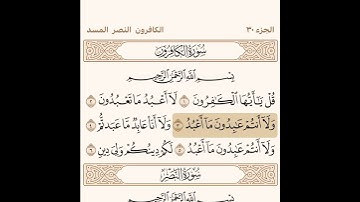 الجزء ٣٠
الكافرون النصر المسد
سورة الكافرون
بسم الله الرحمن الرحيم
قُلْ يَٰٓأَيُّهَا ٱلْكَٰفِرُونَ ١ لَآ أَعْبُدُ مَا تَعْبُدُونَ ٢
وَلَآ أَنتُمْ عَٰبِدُونَ مَآ أَعْبُدُ ٣ وَلَآ أَنَا۠ عَابِدٌ مَّا عَبَدتُّمْ ٤
وَلَآ أَنتُمْ عَٰبِدُونَ مَآ أَعْبُدُ ٥ لَكُمْ دِينُكُمْ وَلِىَ دِينِ ٦
سورة النصر
بسم الله الرحمن الرحيم